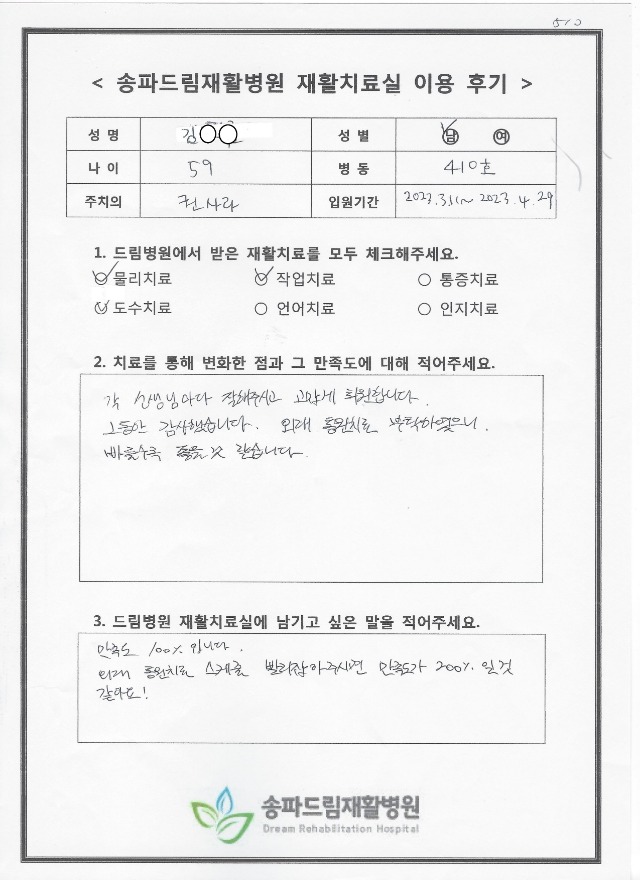 510
< 송파드림재활병원 재활치료실 이용 후기 >
성 명 김○○ 성 별 남 여
나 이 59 병 동 410호
주치의 권사라 입원기간 2023.3.11~ 2023.4.29
1. 드림병원에서 받은 재활치료를 모두 체크해주세요.
물리치료 작업치료 통증치료
도수치료 언어치료 인지치료
2. 치료를 통해 변화한 점과 그 만족도에 대해 적어주세요.
각 선생님마다 잘해주시고 고맙게 퇴원합니다.
그동안 감사했습니다. 외래 통원치료 부탁하였으니.
3. 드림병원 재활치료실에 남기고 싶은 말을 적어주세요.
만족도 100% 입니다.
외래 통원치료 스케줄 빨리잡아주시면 만족도가 200% 일것
같아요!
송파드림재활병원
Dream Rehabilitation Hospital